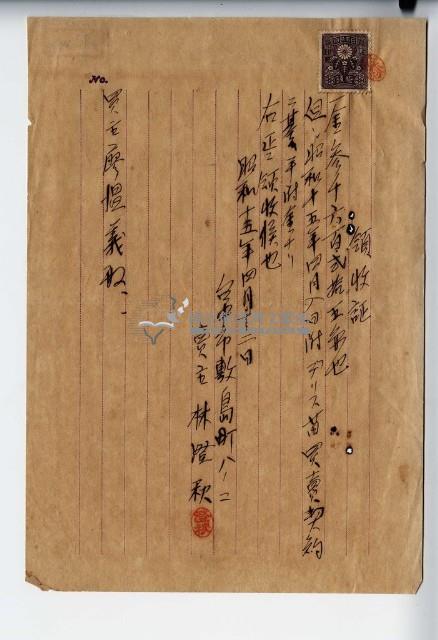 領收証
一金參千六百貳拾五円也
但シ昭和十五年四月八日附デリス苗買賣契約
ニ基ク手附金ナリ
右正ニ領收候也
昭和十五年四月十二日
台中市敷島町八ノ二
賣主 林澄秋
買主 廖温義殿
No.